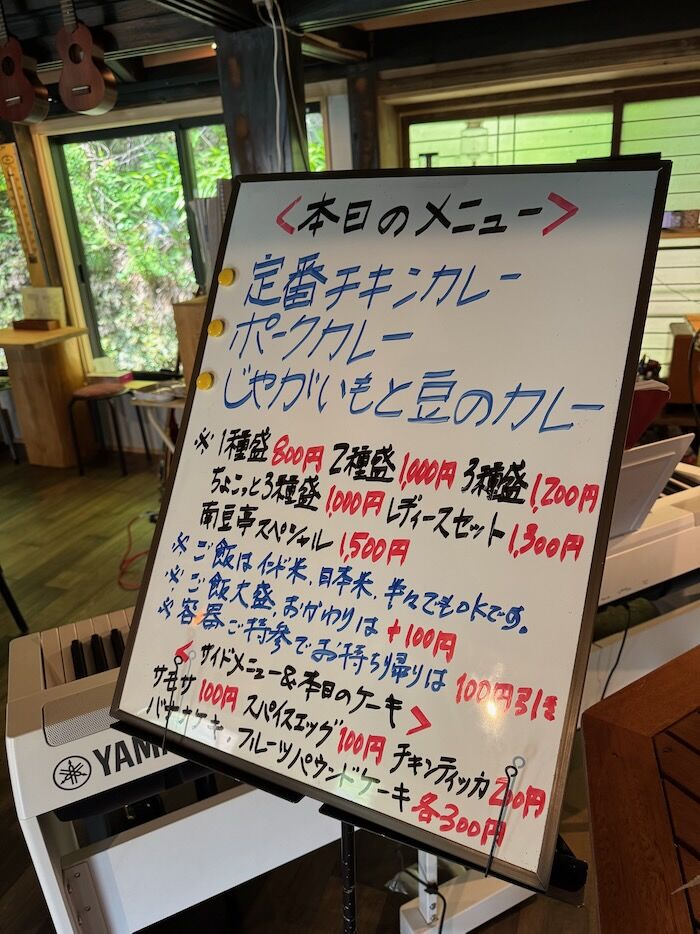 <本日のメニュー>
定番チキンカレー
ポークカレー
じゃがいもと豆のカレー
※1種盛800円 2種盛1,000円 3種盛1,200円
ちょこっと3種盛1,000円 レディースセット1,300円
南豆亭スペシャル1,500円
※ご飯はインド米、日本米、半々でもOKです。
※ご飯大盛、おかわりは+100円
※容器ご持参でお持ち帰りは100円引き
<サイドメニュー&本日のケーキ>
サモサ100円 スパイスエッグ100円 チキンティッカ200円
バナナケーキ・フルーツパウンドケーキ各300円
YAMA